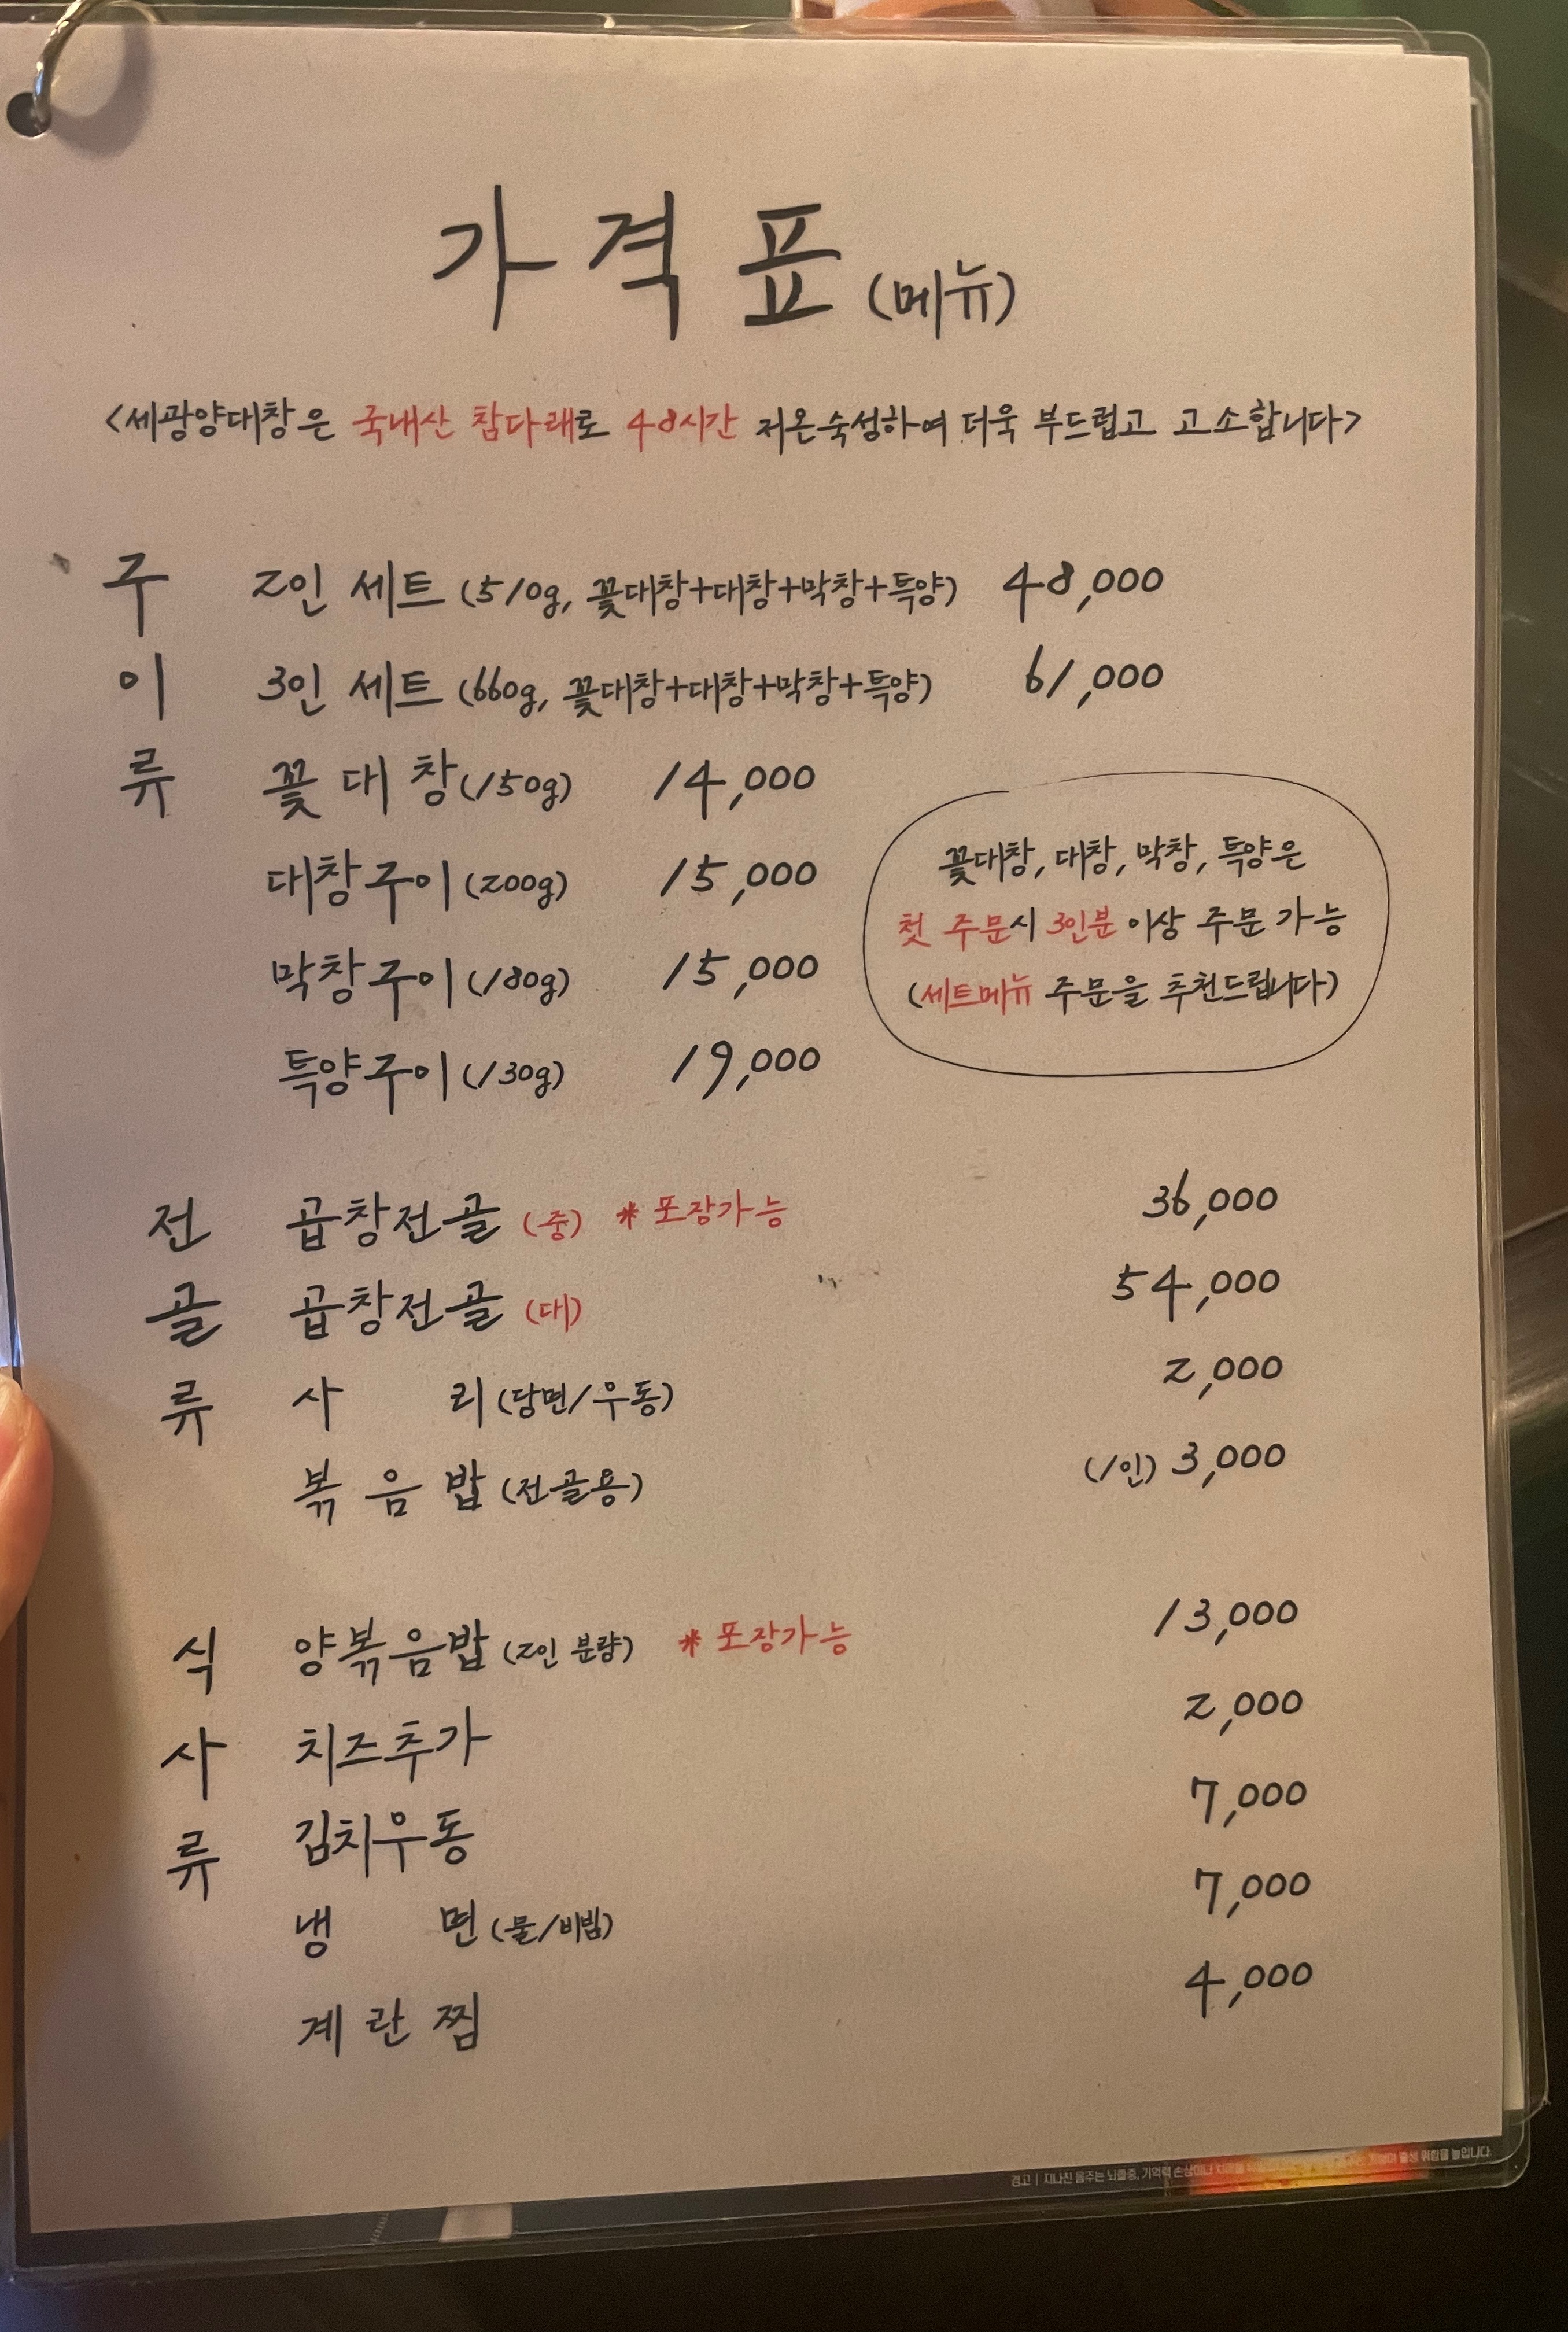 가격표 (메뉴)
<세광양대창은 국내산 참다래로 48시간 저온숙성하여 더욱 부드럽고 고소합니다>
구이류
2인 세트 (510g, 꽃대창+대창+막창+특양) 48,000
3인 세트 (660g, 꽃대창+대창+막창+특양) 61,000
꽃대창 (150g) 14,000
대창구이 (200g) 15,000
막창구이 (180g) 15,000
특양구이 (130g) 19,000
꽃대창, 대창, 막창, 특양은
첫 주문시 3인분 이상 주문 가능
(세트메뉴 주문을 추천드립니다)
전골류
곱창전골 (중) * 포장가능 36,000
곱창전골 (대) 54,000
사리 (당면/우동) 2,000
볶음밥 (전골용) (1인) 3,000
식사류
양볶음밥 (2인 분량) * 포장가능 13,000
치즈추가 2,000
김치우동 7,000
냉면 (물/비빔) 7,000
계란찜 4,000
경고 | 지나친 음주는 뇌졸중, 기억력 손상이나 치매를